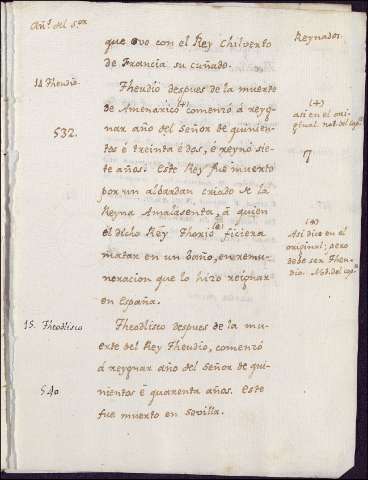 Añ.s del S.or
Reynados.
que ovo con el Rey Chilverto
de Francia su cuñado.
14 Theudio.
Theudio despues de la muerte
de Amenarico(+) comenzó á reyg-
nar año del Señor de quinien-
tos é treinta é dos, é reynó sie-
te años. Este Rey fue muerto
por un albardan criado de la
Reyna Amalasenta, á quien
el dicho Rey Thorio(+) ficiera
matar en un baño, en remu-
neracion que lo hizo reignar
en España.
532.
(+)
asi en el ori-
ginal. not. del cop.te
7
(+)
Asi dice en el
original; pero
debe ser Theu-
dio. Nt. del cop.te
15. Theodlisco
Theodlisco despues de la mu-
erte del Rey Theudio, comenzó
á reygnar año del Señor de qui-
nientos é quarenta años. Este
fue muerto en Sevilla.
540